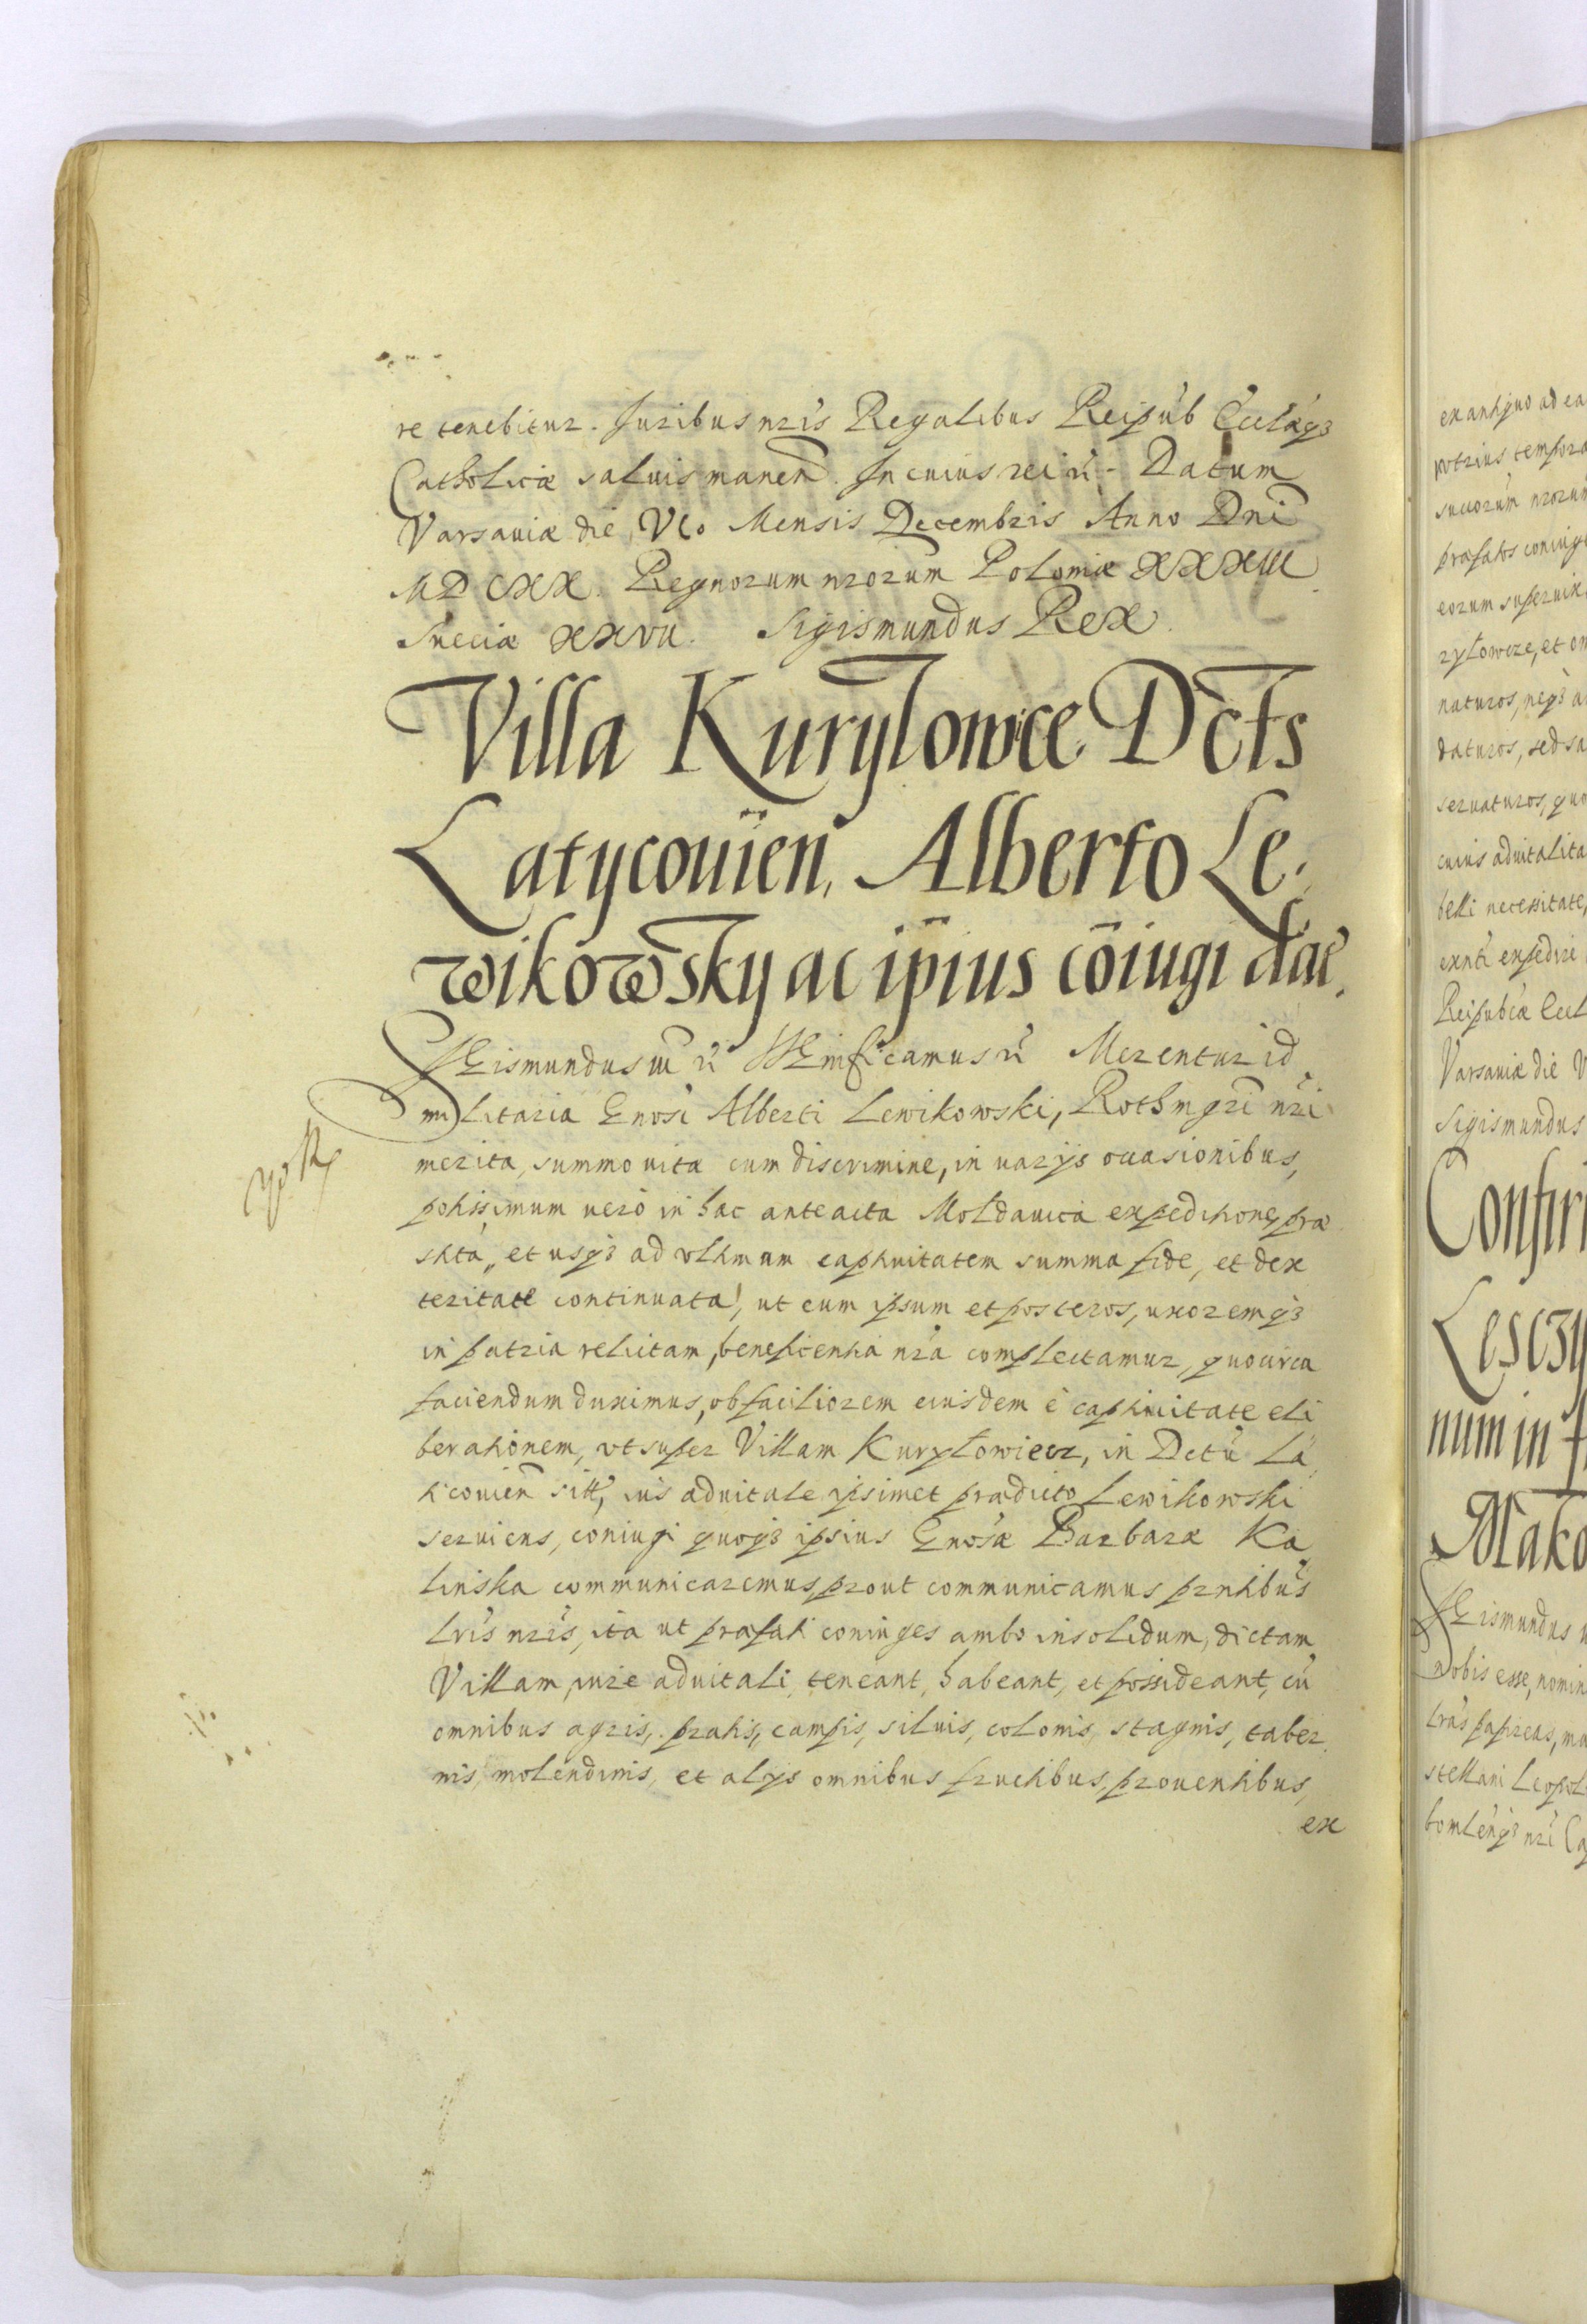 re tenebitur. Juribus nris Regalibus Reipub Ecclaeqз
Catholicæ saluis manen. In cuius rei rī. Datum
Varsauiæ die VIo Mensis Decembris Anno Dni
MDCXX. Regnorum nrorum Poloniæ XXXIII
Sueciæ XXVII. Sigismundus Rex.
Villa Kuryłowice Dcts
Latycouien, Alberto Le-
wikowsky ac ipius coiugi datʳ.
SIgismundus III rī SIgnificamus rī Merentur id
militaria Gnosi Alberti Lewikowski, Rothmgri nri
merita, summo uitæ cum discrimine, in uarijs occasionibus,
potissimum uerò in hac anteacta Moldauica expeditione, præ
stita, et usqз ad vltimam captiuitatem summa fide, et dex
teritate continuata, ut eum ipsum et posteros, uxoremqз
in patria relictam, beneficentia nra complectamur, quocirca
faciendum duximus, ob faciliorem eiusdem è captiuitate eli
berationem, vt super Villam Kuryłowiecz, in Dctu La
ticouien sitt, ius aduitale ipsimet prædicto Lewikowski
seruiens, coniugi quoqз ipsius Gnosæ Barbaræ Ka
linska communicaremus, prout communicamus prntibus
lris nris, ita ut præfati coniuges ambo insolidum, dictam
Villam, iure aduitali, teneant, habeant, et possideant, cū
omnibus agris, pratis, campis, siluis, colonis, stagnis, taber
nis, molendinis, et alijs omnibus fructibus, prouentibus,
ex
ex antiquo ad ea
potrius tempora
succorum nrorum
præfatos coniuge
eorum superuix
ryłowcze, et om
naturos, neqз a
daturos, sed sa
seruaturos, quo
cuius aduitalita
belli necessitate,
exnti expedire
Reipubcæ Eccl
Varsauiæ die V
Sigismundus
Confir
Lesczy
num in f
Mako
SIgismundus
nobis esse, nomin
lras papireas, ma
stellani Leopol
bomleñqз nri Ca